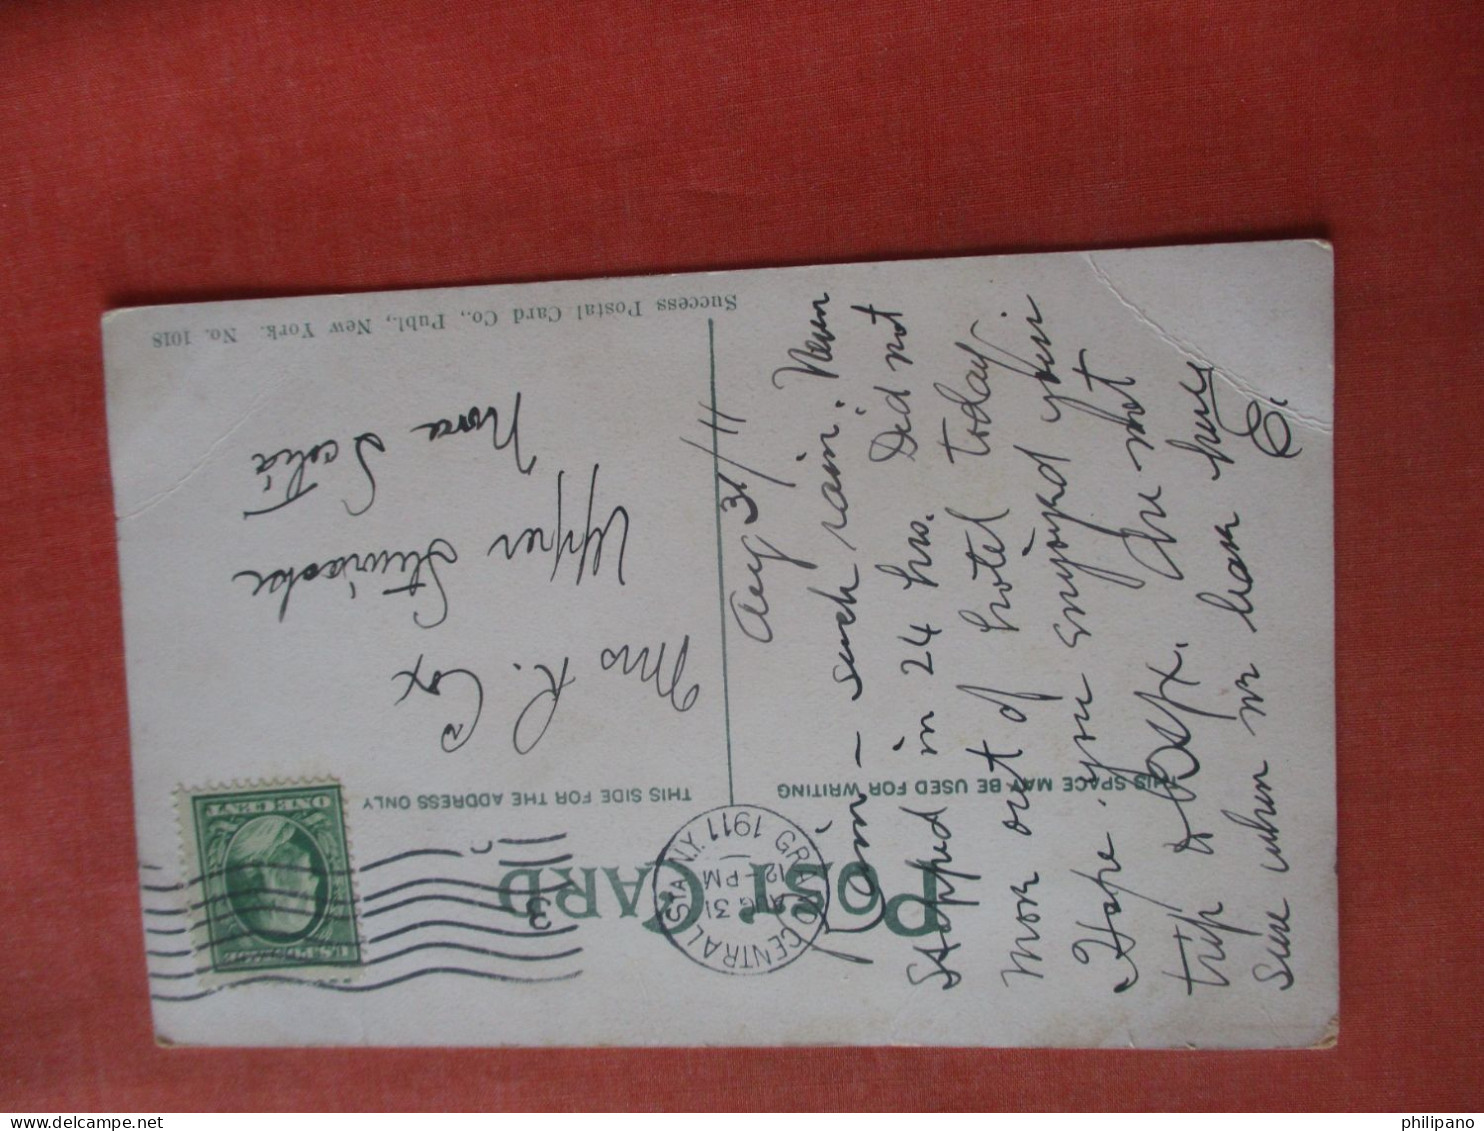 POST CARD
GRAND CENTRAL STA. N.Y.
AUG 31
12-PM
1911
3
U.S. POSTAGE
ONE CENT
THIS SPACE MAY BE USED FOR WRITING
THIS SIDE FOR THE ADDRESS ONLY
Aug 31/11
rain – such rain. Never
stopped in 24 hrs. Did not
more out of hotel today.
Hope you enjoyed your
trip &
Sure when we hear
E.
Mrs R. Cox
Upper Stewiacke
Nova Scotia
Success Postal Card Co., Publ., New York. No. 1018
philipano